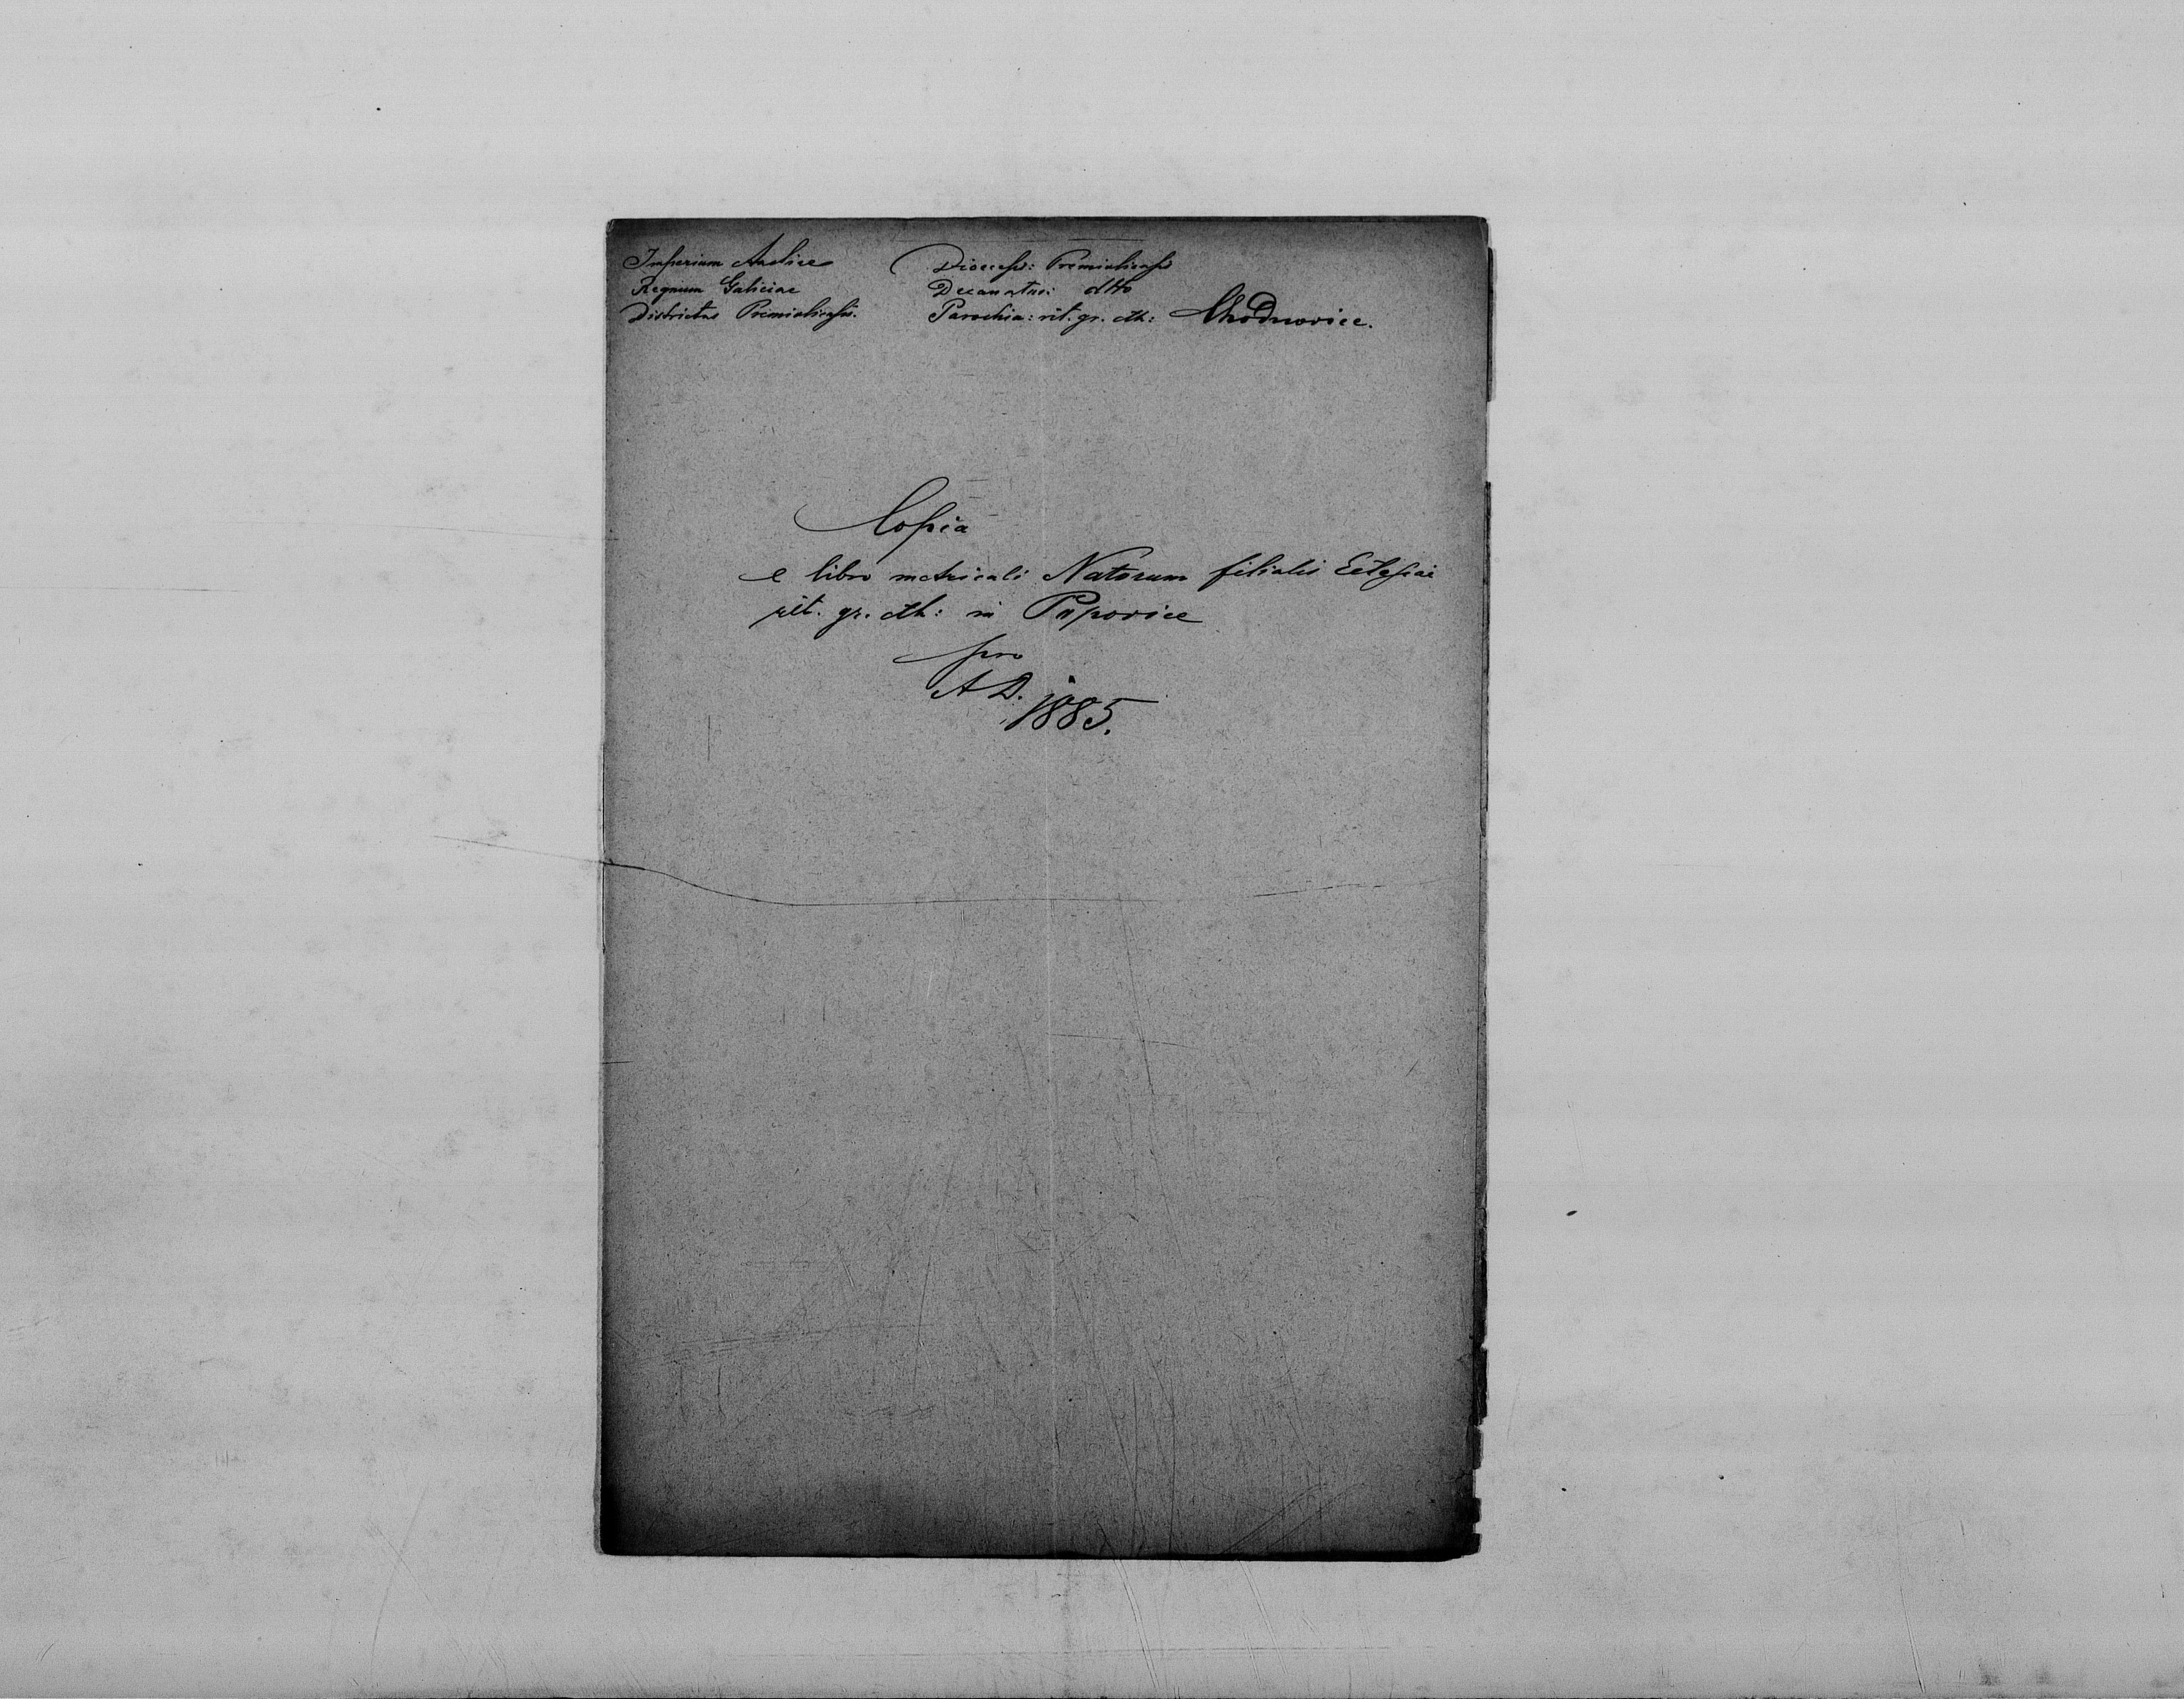 Imperium Austriae
Regnum Galiciae
Districtus Premisliensis.
Diocesis: Premisliensis
Decanatus: dtto
Parochia: rit. gr. cth: Chodnovice.
Copia
e libro metricali Natorum filialis Eclesiae
rit. gr. cth: in Popovice
pro
A D. 1885.